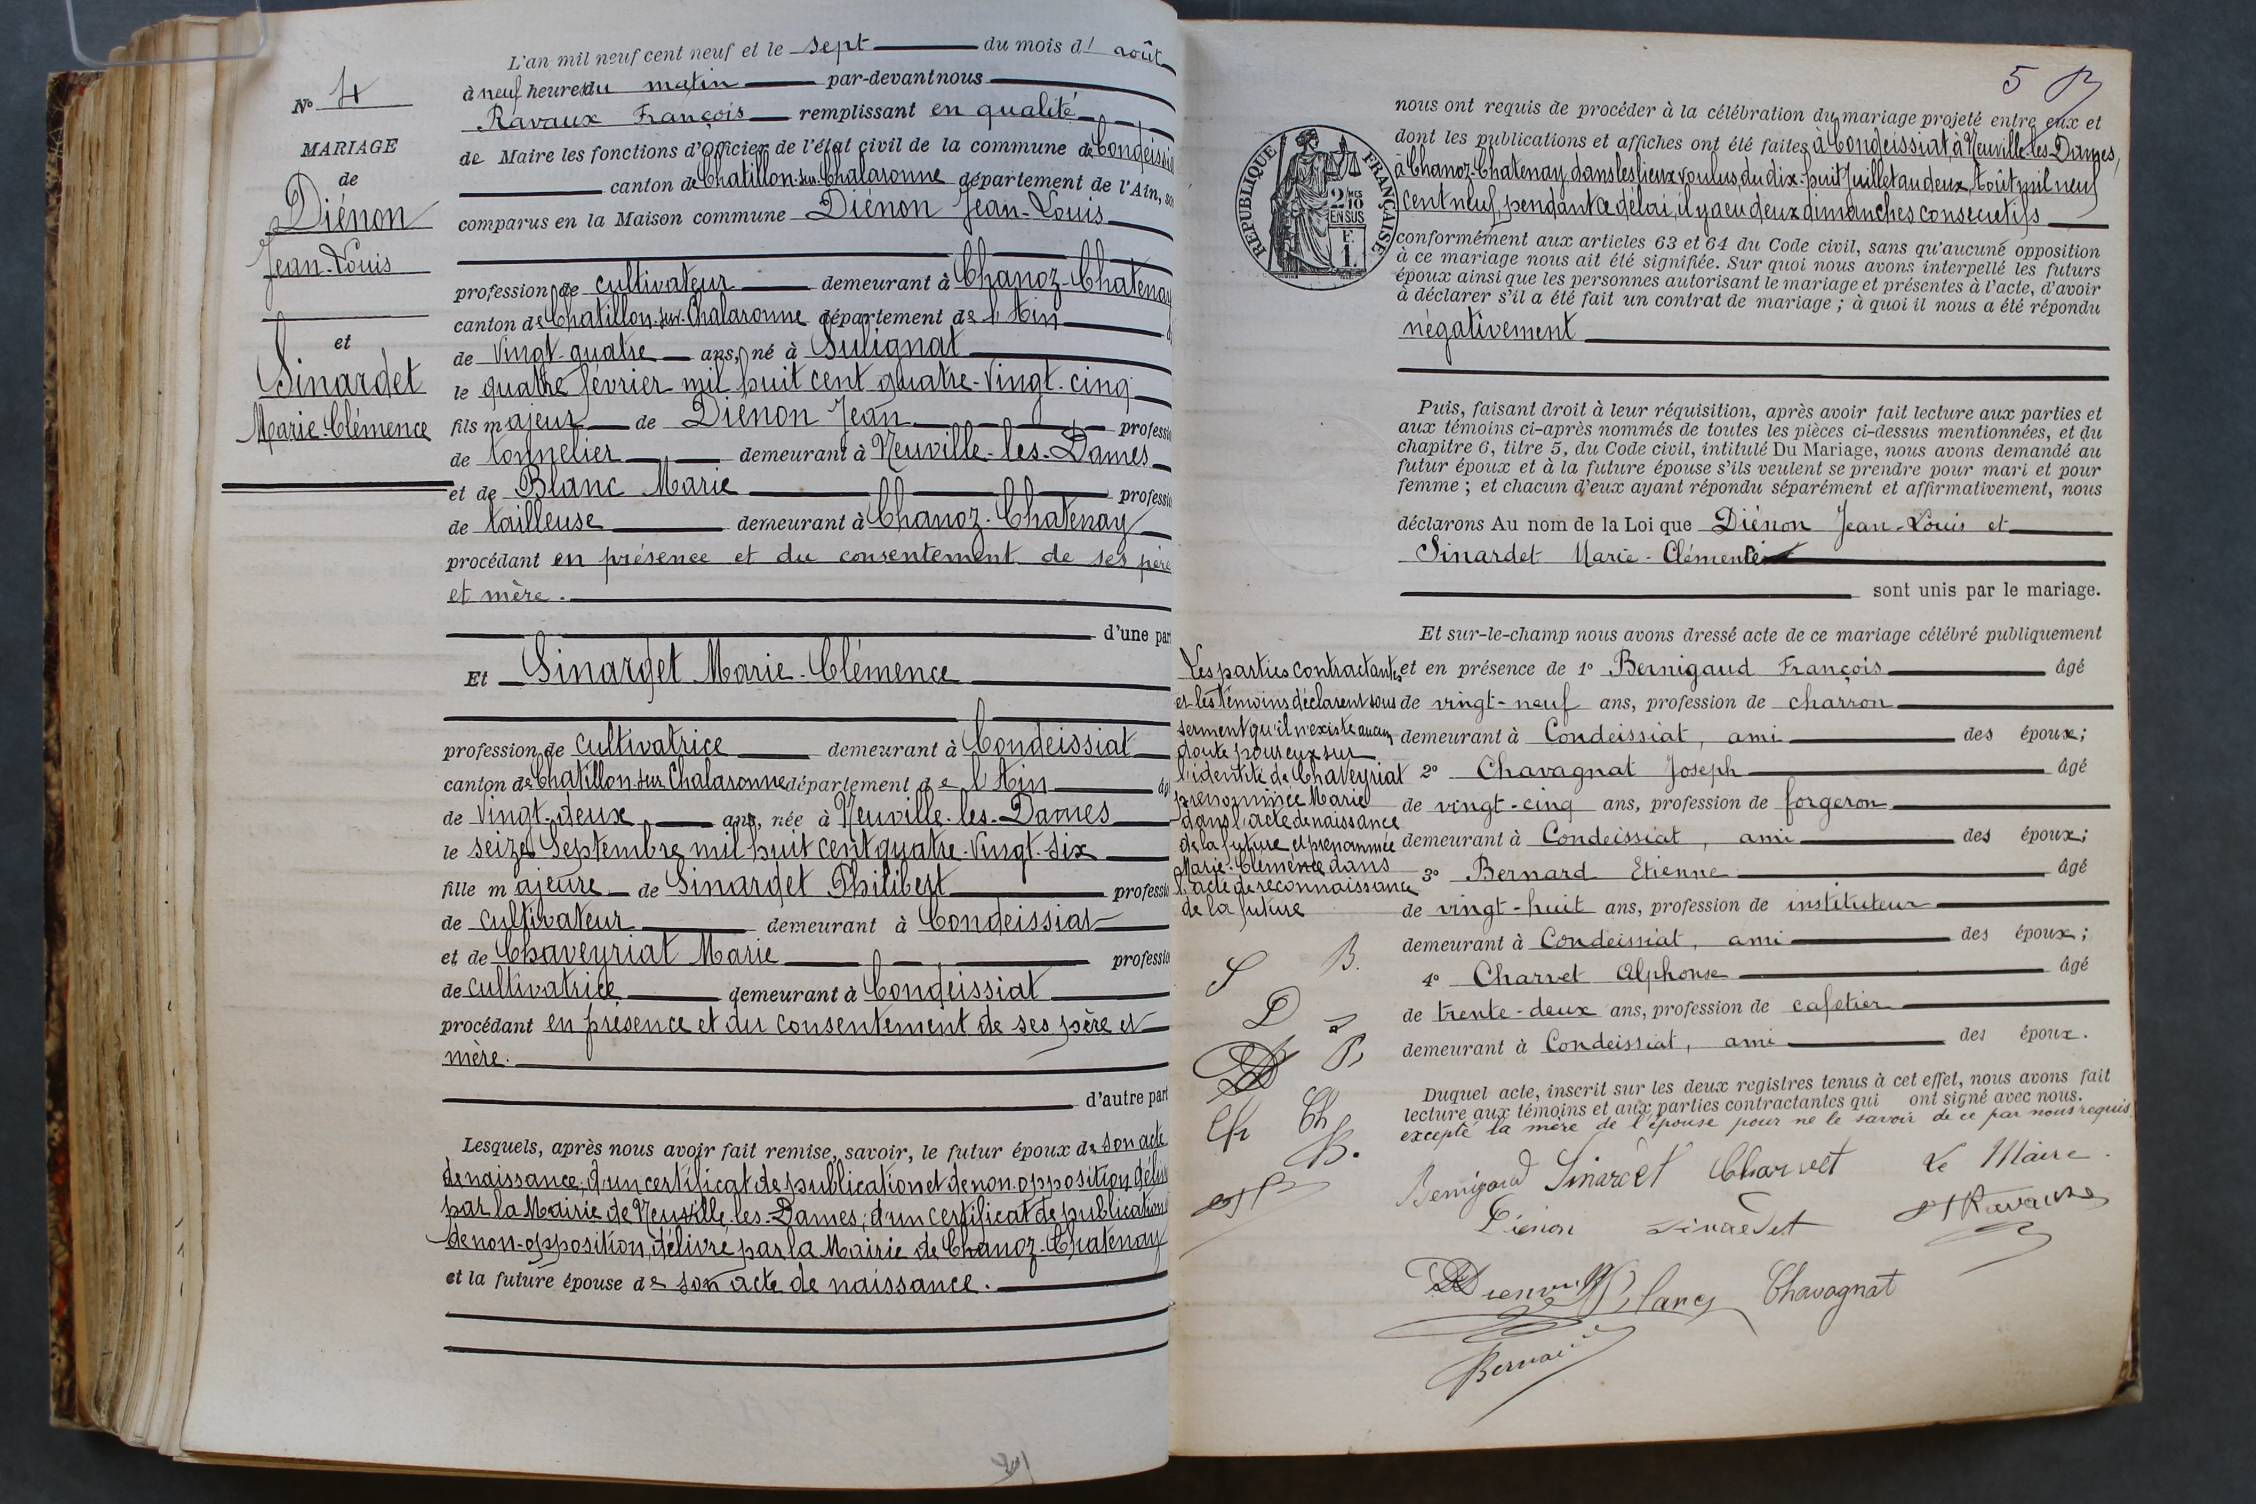 N° 4
MARIAGE
de
Diénon
Jean-Louis
et
Sinardet
Marie-Clémence
L'an mil neuf cent neuf et le sept du mois d' août
à neuf heures du matin par-devant nous
Ravaux François remplissant en qualité
de Maire les fonctions d'Officier de l'état civil de la commune de Condeissiat
canton de Chatillon-sur-Chalaronne département de l'Ain,
comparus en la Maison commune Diénon Jean-Louis
profession de cultivateur demeurant à Chanoz-Chatenay
canton de Chatillon-sur-Chalaronne département de l'Ain
de vingt-quatre ans, né à Sulignat
le quatre février mil huit cent quatre-vingt-cinq
fils majeur de Diénon Jean professi
de tonnelier demeurant à Neuville-les-Dames
et de Blanc Marie professi
de tailleuse demeurant à Chanoz-Chatenay
procédant en présence et du consentement de ses père
et mère.
d'une par
Et Sinardet Marie-Clémence
profession de cultivatrice demeurant à Condeissiat
canton de Chatillon-sur-Chalaronne département de l'Ain âg
de vingt-deux ans, née à Neuville-les-Dames
le seize Septembre mil huit cent quatre-vingt-six
fille majeure de Sinardet Philibert professio
de cultivateur demeurant à Condeissiat
et de Chaveyriat Marie professio
de cultivatrice demeurant à Condeissiat
procédant en présence et du consentement de ses père et
mère.
d'autre part
Lesquels, après nous avoir fait remise, savoir, le futur époux de son acte
de naissance; d'un certificat de publication et de non-opposition délivré
par la Mairie de Neuville-les-Dames; d'un certificat de publication
de non-opposition, délivré par la Mairie de Chanoz-Chatenay
et la future épouse de son acte de naissance.
5
RÉPUBLIQUE FRANÇAISE
2/10 MES
EN SUS
F.
1.
nous ont requis de procéder à la célébration du mariage projeté entre eux et
dont les publications et affiches ont été faites à Condeissiat, à Neuville-les-Dames,
à Chanoz-Chatenay, dans les lieux voulus, du dix-huit Juillet au deux Août mil neuf
cent neuf, pendant ce délai, il y a eu deux dimanches consécutifs
conformément aux articles 63 et 64 du Code civil, sans qu'aucune opposition
à ce mariage nous ait été signifiée. Sur quoi nous avons interpellé les futurs
époux ainsi que les personnes autorisant le mariage et présentes à l'acte, d'avoir
à déclarer s'il a été fait un contrat de mariage ; à quoi il nous a été répondu
négativement
Puis, faisant droit à leur réquisition, après avoir fait lecture aux parties et
aux témoins ci-après nommés de toutes les pièces ci-dessus mentionnées, et du
chapitre 6, titre 5, du Code civil, intitulé Du Mariage, nous avons demandé au
futur époux et à la future épouse s'ils veulent se prendre pour mari et pour
femme ; et chacun d'eux ayant répondu séparément et affirmativement, nous
déclarons Au nom de la Loi que Diénon Jean-Louis et
Sinardet Marie-Clémence
sont unis par le mariage.
Et sur-le-champ nous avons dressé acte de ce mariage célébré publiquement
et en présence de 1° Bernigaud François âgé
de vingt-neuf ans, profession de charron
demeurant à Condeissiat, ami des époux;
2° Chavagnat Joseph âgé
de vingt-cinq ans, profession de forgeron
demeurant à Condeissiat, ami des époux;
3° Bernard Etienne âgé
de vingt-huit ans, profession de instituteur
demeurant à Condeissiat, ami des époux;
4° Charvet Alphonse âgé
de trente-deux ans, profession de cafetier
demeurant à Condeissiat, ami des époux.
Duquel acte, inscrit sur les deux registres tenus à cet effet, nous avons fait
lecture aux témoins et aux parties contractantes qui ont signé avec nous.
excepté la mère de l'épouse pour ne le savoir de ce par nous requis
Les parties contractantes
et les témoins déclarent sous
serment qu'il n'existe aucun
doute pour eux sur
l'identité de Chaveyriat
prénommée Marie
dans l'acte de naissance
de la future et prénommée
Marie-Clémence dans
l'acte de reconnaissance
de la future
S B.
D
Ch Ch
B.
Bernigaud Sinardet Charvet Le Maire.
Diénon Sinardet Ravaux
Dienon Blanc Chavagnat
Bernard